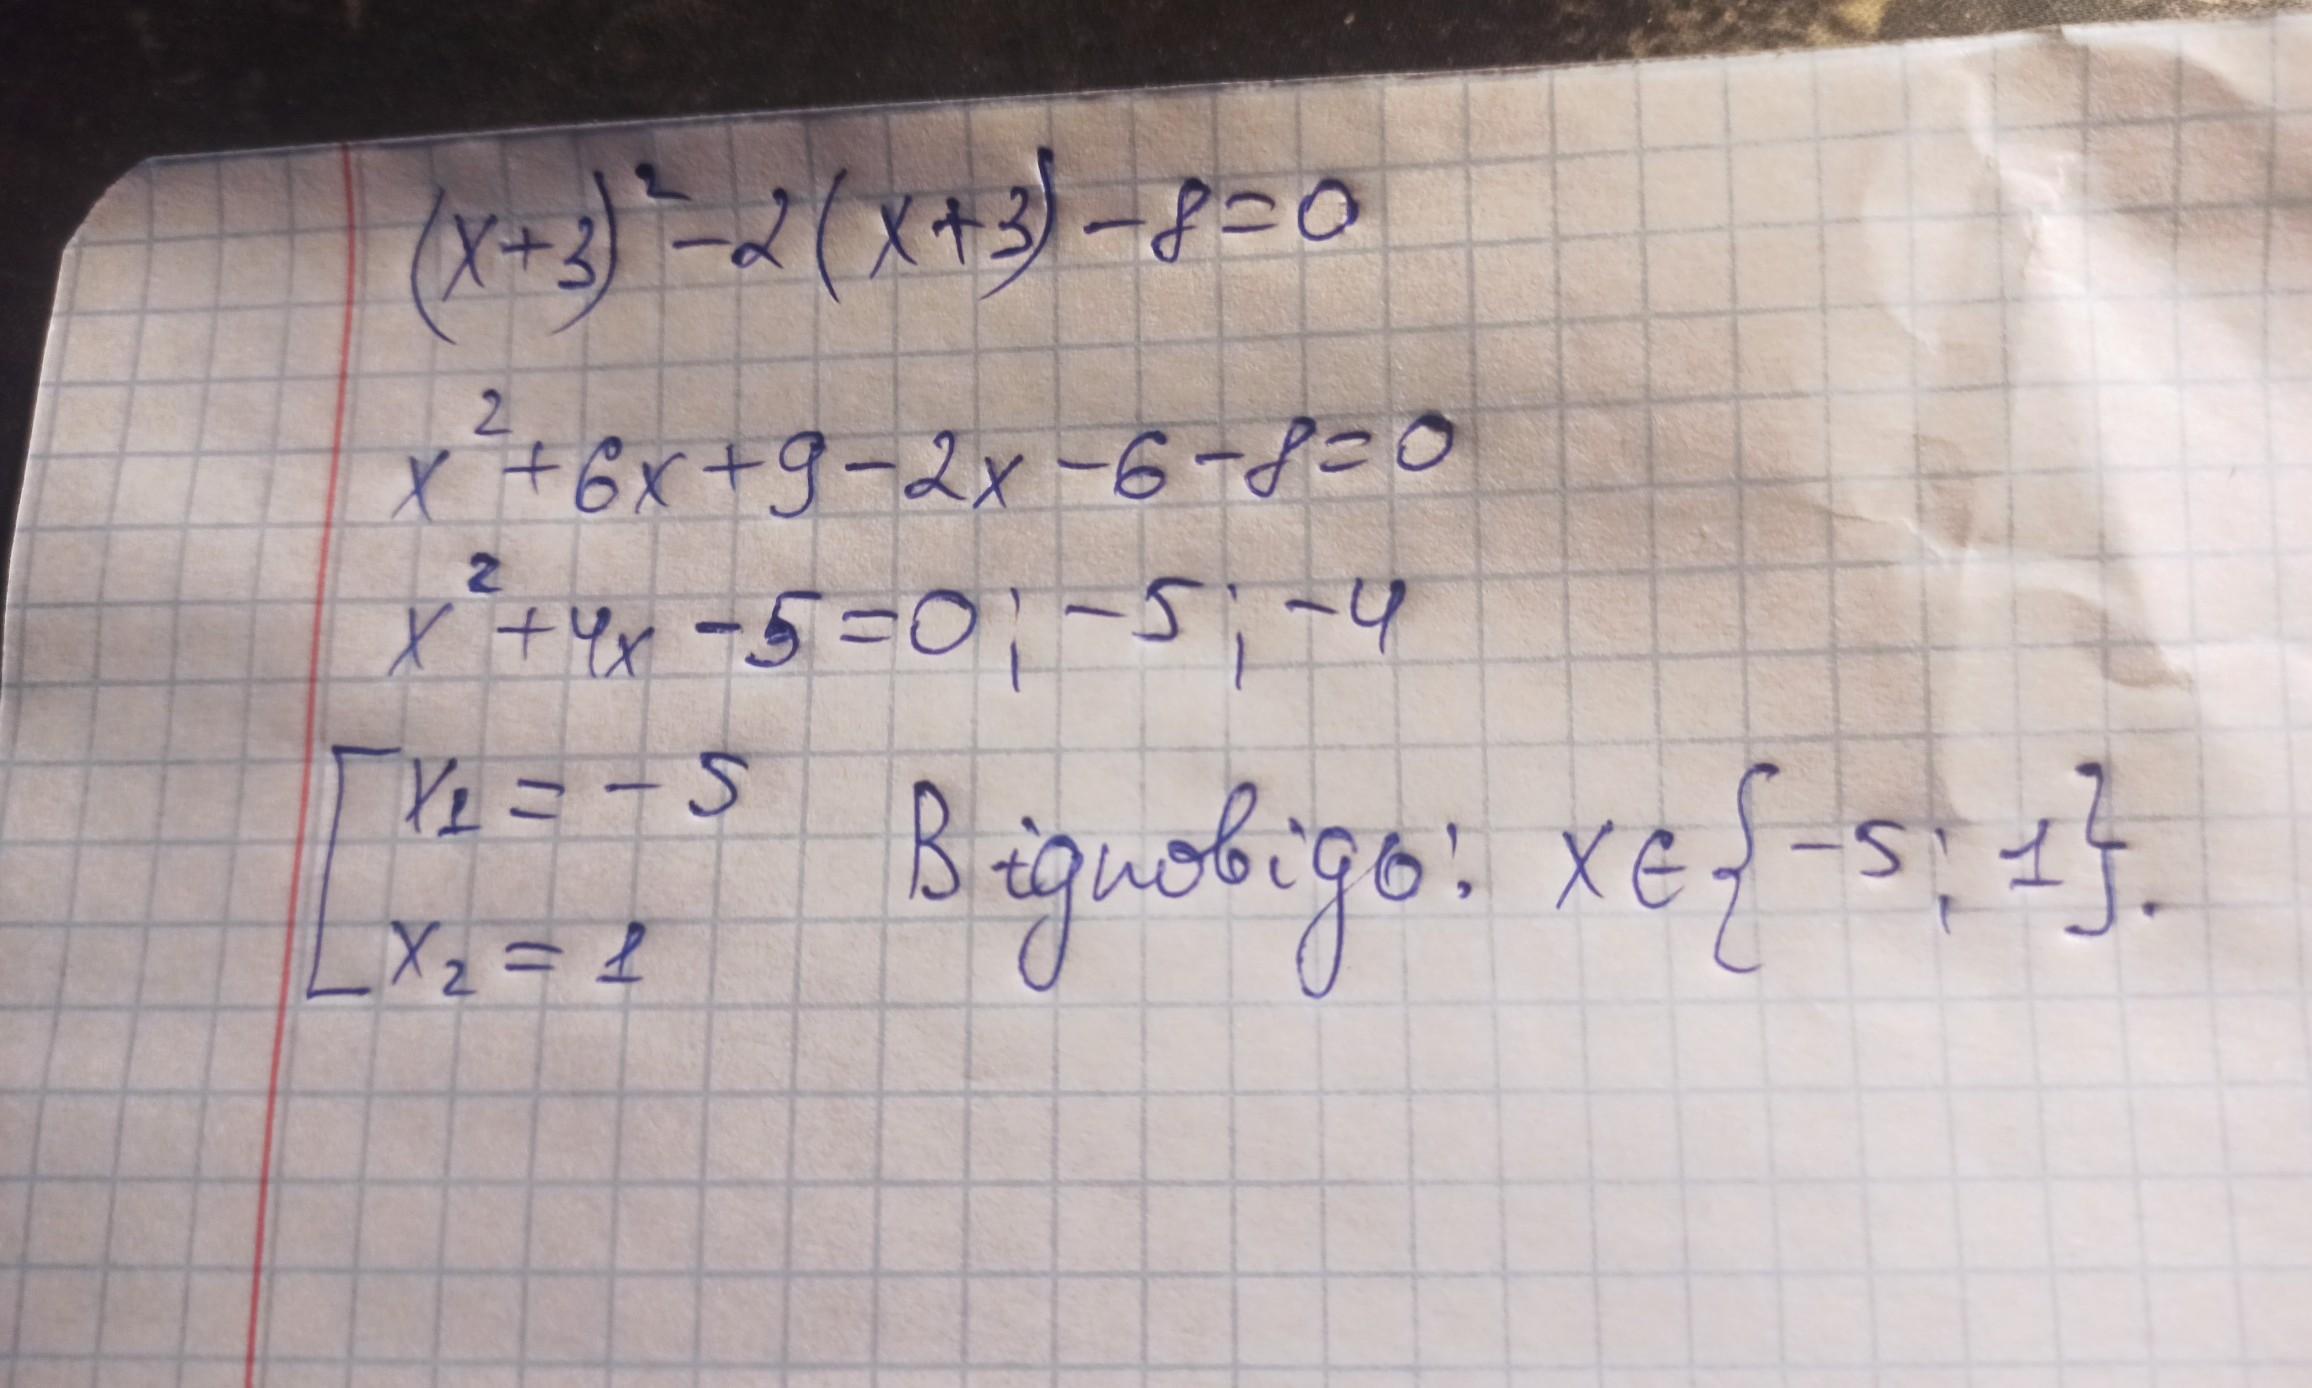 (x+3)² -2(x+3) -8=0
x² +6x+9-2x-6-8=0
x² +4x -5=0; -5; -4
[ x₁ = -5
x₂ = 1
Відповідь: x∈{-5; 1}.